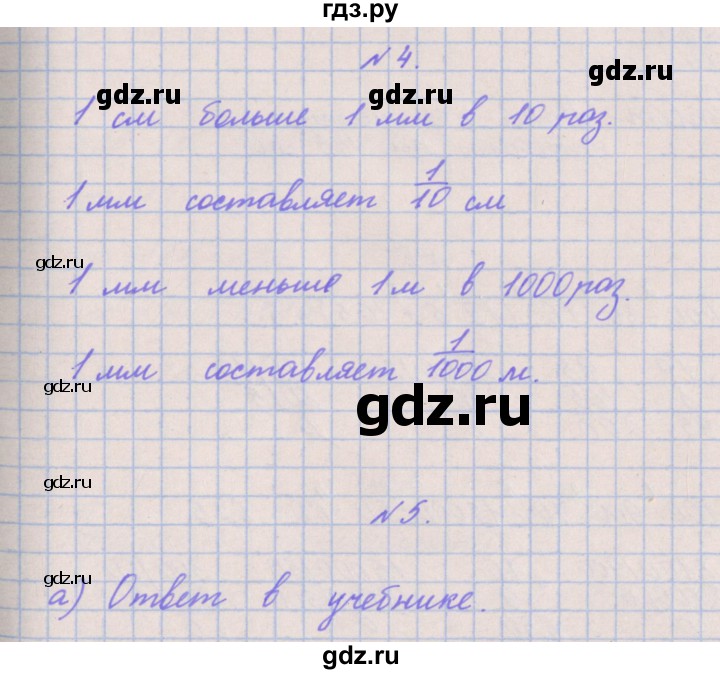 гдз.ру
№ 4.
gdz.ru
gdz.ru
gdz.ru
1 см больше 1 мм в 10 раз.
1 мм составляет 1/10 см
gdz.ru
1 мм меньше 1 м в 1000 раз.
1 мм составляет 1/1000 м.
gdz.ru
gdz.ru
gdz.ru
№ 5.
gdz.ru
а) Ответ в учебнике.
gdz.ru